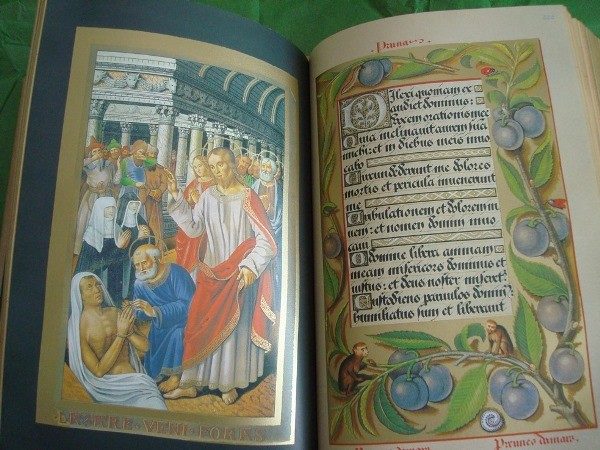 LAZARE VENI FORAS
Dilexi quoniam ex
audiet dominus:
vocem orationis mee
Quia inclinavit aurem sua
michi: et in diebus meis invo
cabo
Circundederunt me dolores
mortis et pericula invenerunt
me
Tribulationem et dolorem
inveni: et nomen domini invo
cavi
O domine libera animam
meam misericors dominus et
iustus: et deus noster miseret
Custodiens parvulos domin
humiliatus sum et liberavit
Prunes damars